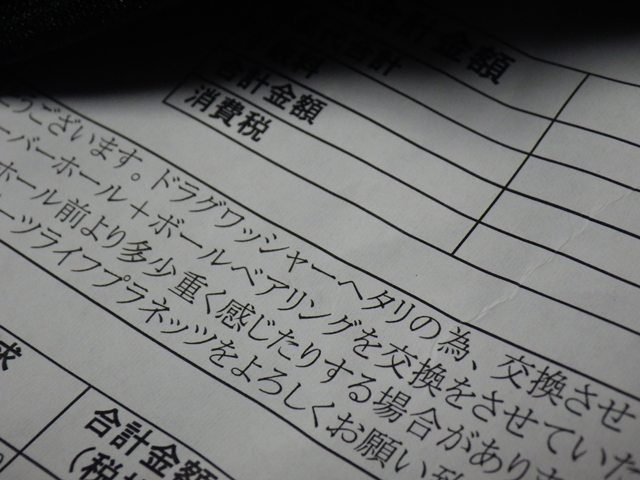 合計金額
代合計
料
合計金額
消費税
うございます。ドラグワッシャーヘタリの為、交換させ
ーバーホール＋ボールベアリングを交換をさせていた
ホール前より多少重く感じたりする場合があり
ーツライフプラネッツをよろしくお願い致
求
合計金額
（税